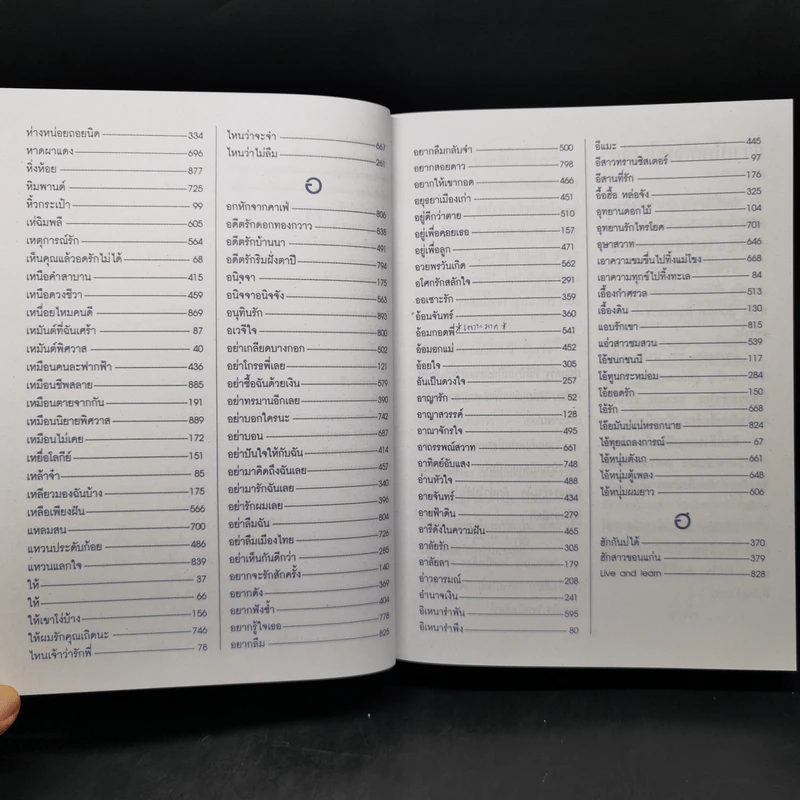 ห่างหน่อยถอยนิด 334
หาดผาแดง 696
หิ่งห้อย 877
หิมพานต์ 725
หิ้วกระเป๋า 99
เห่ฉิมพลี 605
เหตุการณ์รัก 564
เห็นคุณแล้วอดรักไม่ได้ 68
เหนือคำสาบาน 415
เหนือดวงชีวา 459
เหนื่อยไหมคนดี 869
เหมันต์ที่ฉันเศร้า 87
เหมันต์พิศวาส 40
เหมือนคนละฟากฟ้า 436
เหมือนชีพสลาย 885
เหมือนตายจากกัน 191
เหมือนนิยายพิศวาส 889
เหมือนไม่เคย 172
เหยื่อโลกีย์ 151
เหล้าจ๋า 85
เหลียวมองฉันบ้าง 175
เหลือเพียงฝัน 566
แหลมสน 700
แหวนประดับก้อย 486
แหวนแลกใจ 839
ให้ 37
ให้ 66
ให้เขาโง่บ้าง 156
ให้ผมรักคุณเถิดนะ 746
ไหนเจ้าว่ารักพี่ 78
ไหนว่าจะจำ 667
ไหนว่าไม่ลืม 261
อ
อกหักจากคาเฟ่ 806
อดีตรักดอกทองกวาว 838
อดีตรักบ้านนา 491
อดีตรักริมฝั่งตาปี 794
อนิจจา 175
อนิจจาอนิจจัง 563
อนุทินรัก 893
อเวจีใจ 800
อย่าเกลียดบางกอก 502
อย่าโกรธพี่เลย 121
อย่าซื้อฉันด้วยเงิน 579
อย่าทรมานอีกเลย 390
อย่าบอกใครนะ 742
อย่าบอน 687
อย่าปันใจให้กับฉัน 414
อย่ามาคิดถึงฉันเลย 457
อย่ามารักฉันเลย 340
อย่ารักผมเลย 396
อย่าลืมฉัน 804
อย่าลืมเมืองไทย 726
อย่าเห็นกันดีกว่า 285
อยากจะรักสักครั้ง 140
อยากดัง 369
อยากฟังซ้ำ 404
อยากรู้ใจเธอ 778
อยากลืม 825
อยากลืมกลับจำ 500
อยากสอยดาว 798
อยากให้เขากอด 466
อยุธยาเมืองเก่า 451
อยู่ดีกว่าตาย 510
อยู่เพื่อคอยเธอ 157
อยู่เพื่อลูก 471
อวยพรวันเกิด 562
อโศกรักสลักใจ 291
ออเซาะรัก 359
อ้อนจันทร์ 360
อ้อมกอดพี่ 541
อ้อมอกแม่ 452
อ้อยใจ 305
อันเป็นดวงใจ 257
อาญารัก 52
อาญาสวรรค์ 128
อาณาจักรใจ 495
อาถรรพณ์สวาท 661
อาทิตย์อับแสง 748
อ่านหัวใจ 488
อายจันทร์ 434
อายฟ้าดิน 279
อารีดังในความฝัน 465
อาลัยรัก 305
อาลัยลา 179
อ่าวอารมณ์ 208
อำนาจเงิน 241
อิเหนารำพัน 595
อิเหนารำพึง 80
อีแมะ 445
อีสาวทรานซิสเตอร์ 97
อีสานที่รัก 176
อื้อฮื้อ หล่อจัง 325
อุทยานดอกไม้ 104
อุทยานรักไทรโยค 701
อุษาสวาท 646
เอาความขมขื่นไปทิ้งแม่โขง 668
เอาความทุกข์ไปทิ้งทะเล 84
เอื้องกำศรวล 513
เอื้องดิน 130
แอบรักเขา 815
แอ่วสาวชมสวน 539
โอ้ชนกชนนี 117
โอ้ทูนกระหม่อม 284
โอ้ยอดรัก 150
โอ้รัก 668
โอ๊ยมันบ่แน่หรอกนาย 824
ไอ้ทุยแถลงการณ์ 67
ไอ้หนุ่มตังเก 661
ไอ้หนุ่มตู้เพลง 648
ไอ้หนุ่มผมยาว 606
ฮ
ฮักกันบ่ได้ 370
ฮักสาวขอนแก่น 379
Live and learn 828